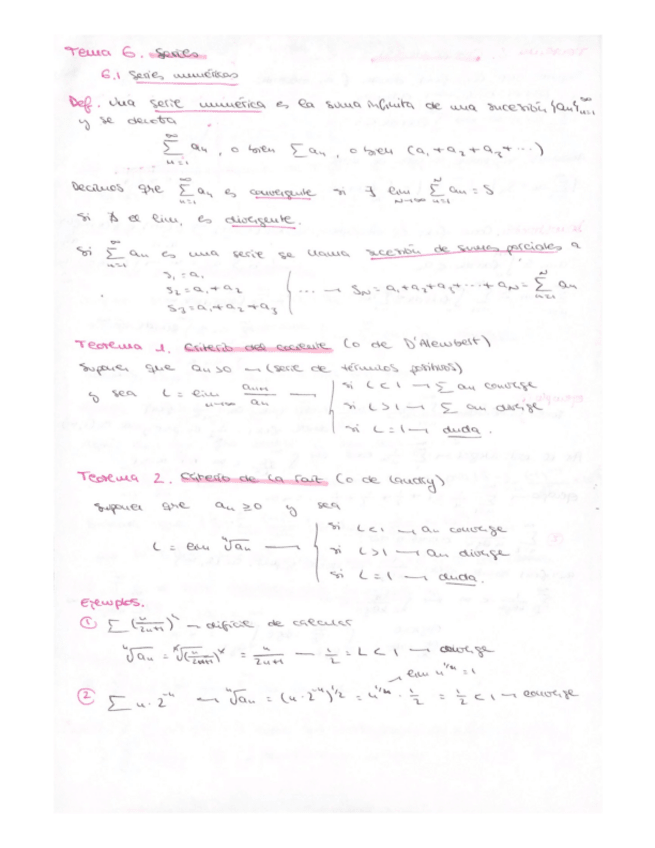 Tema 6. Series
6.1 Series numéricas
Def. Una serie numérica es la suma infinita de una sucesión {an}∞n=1
y se denota
∞∑n=1 an, o bien ∑an, o bien (a1+a2+a3+···)
Decimos que ∞∑n=1 an es convergente si ∃ lim N→∞ N∑n=1 an = S
Si ∄ el lim, es divergente.
Si ∞∑n=1 an es una serie se llama sucesión de sumas parciales a
S1 = a1
S2 = a1 + a2 ... → SN = a1+a2+a3+···+aN = N∑n=1 an
S3 = a1+a2+a3
Teorema 1. Criterio del cociente (o de D'Alembert)
Suponer que an>0 → (serie de términos positivos)
y sea L = lim n→∞ an+1/an → si L<1 → ∑ an converge
si L>1 → ∑ an diverge
si L=1 → duda.
Teorema 2. Criterio de la raíz (o de Cauchy)
Suponer que an ≥ 0 y sea
si L<1 → an converge
L = lim ⁿ√an → si L>1 → an diverge
si L=1 → duda.
Ejemplos.
① ∑ (n/2n+1)ⁿ → difícil de calcular
ⁿ√an = ⁿ√(n/2n+1)ⁿ = n/2n+1 → 1/2 = L < 1 →
lim n^1/n = 1
② ∑ n·2⁻ⁿ → ⁿ√an = (n·2⁻ⁿ)^1/2 = n^1/n · 1/2 = 1/2 < 1 → converge